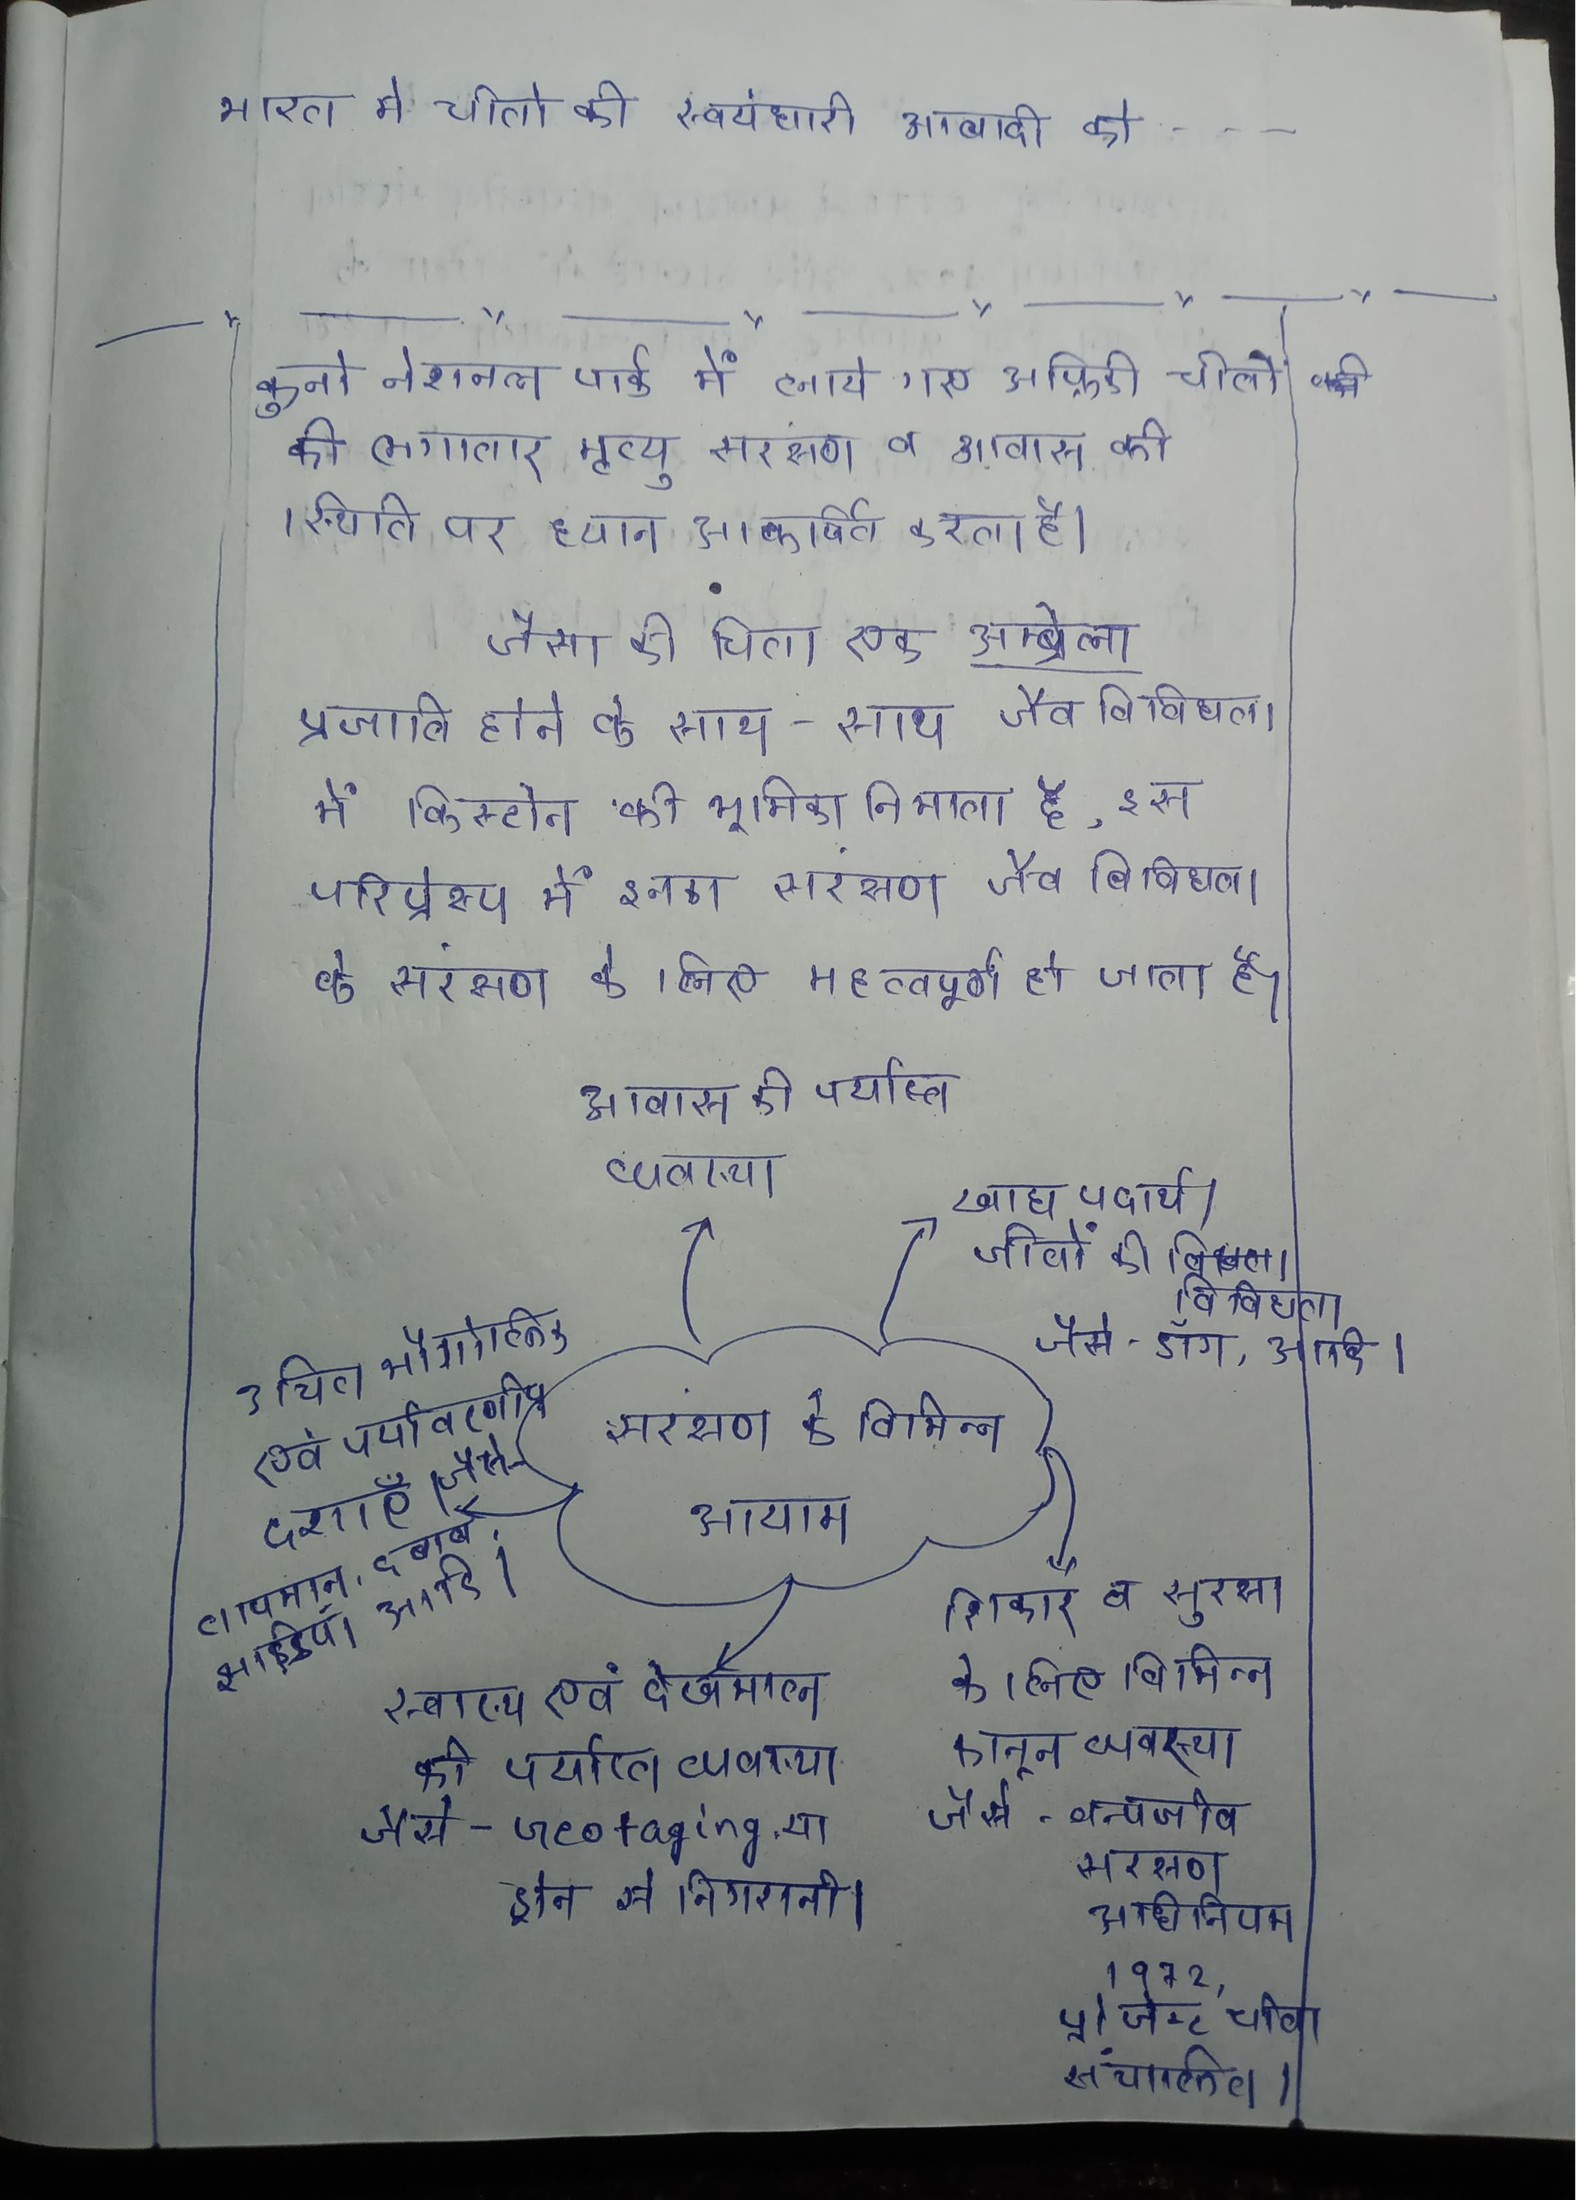 भारत मे चीतो की स्वयंधारी आबादी को - - - -
कुनो नेशनल पार्क में लाये गए अफ्रिकी चीतो
की लगातार मृत्यु सरंक्षण व आवास की
स्थिति पर ध्यान आकर्षित करता है।
जैसा की चिता एक अम्ब्रेला
प्रजाति होने के साथ - साथ जैव विविधता
में किस्टोन की भूमिका निभाता है, इस
परिप्रेक्ष्य में इनका सरंक्षण जैव विविधता
के सरंक्षण के लिए महत्वपूर्ण हो जाता है।
आवास की पर्याप्त
व्यवस्था
खाद्य पदार्थ।
जीवों की
विविधता
जैसे - डॉग, आदि।
उचित भौगोलिक
एवं पर्यावरणीय
दशाएँ जैसे-
तापमान, दबाव,
झाड़ियाँ आदि।
सरंक्षण के विभिन्न
आयाम
शिकार व सुरक्षा
के लिए विभिन्न
कानून व्यवस्था
जैसे - वन्यजीव
सरक्षण
अधिनियम
1972,
प्रोजेक्ट चीता
संचालित।
स्वास्थ्य एवं देखभाल
की पर्याप्त व्यवस्था
जैसे - Geotaging या
ड्रोन से निगरानी।